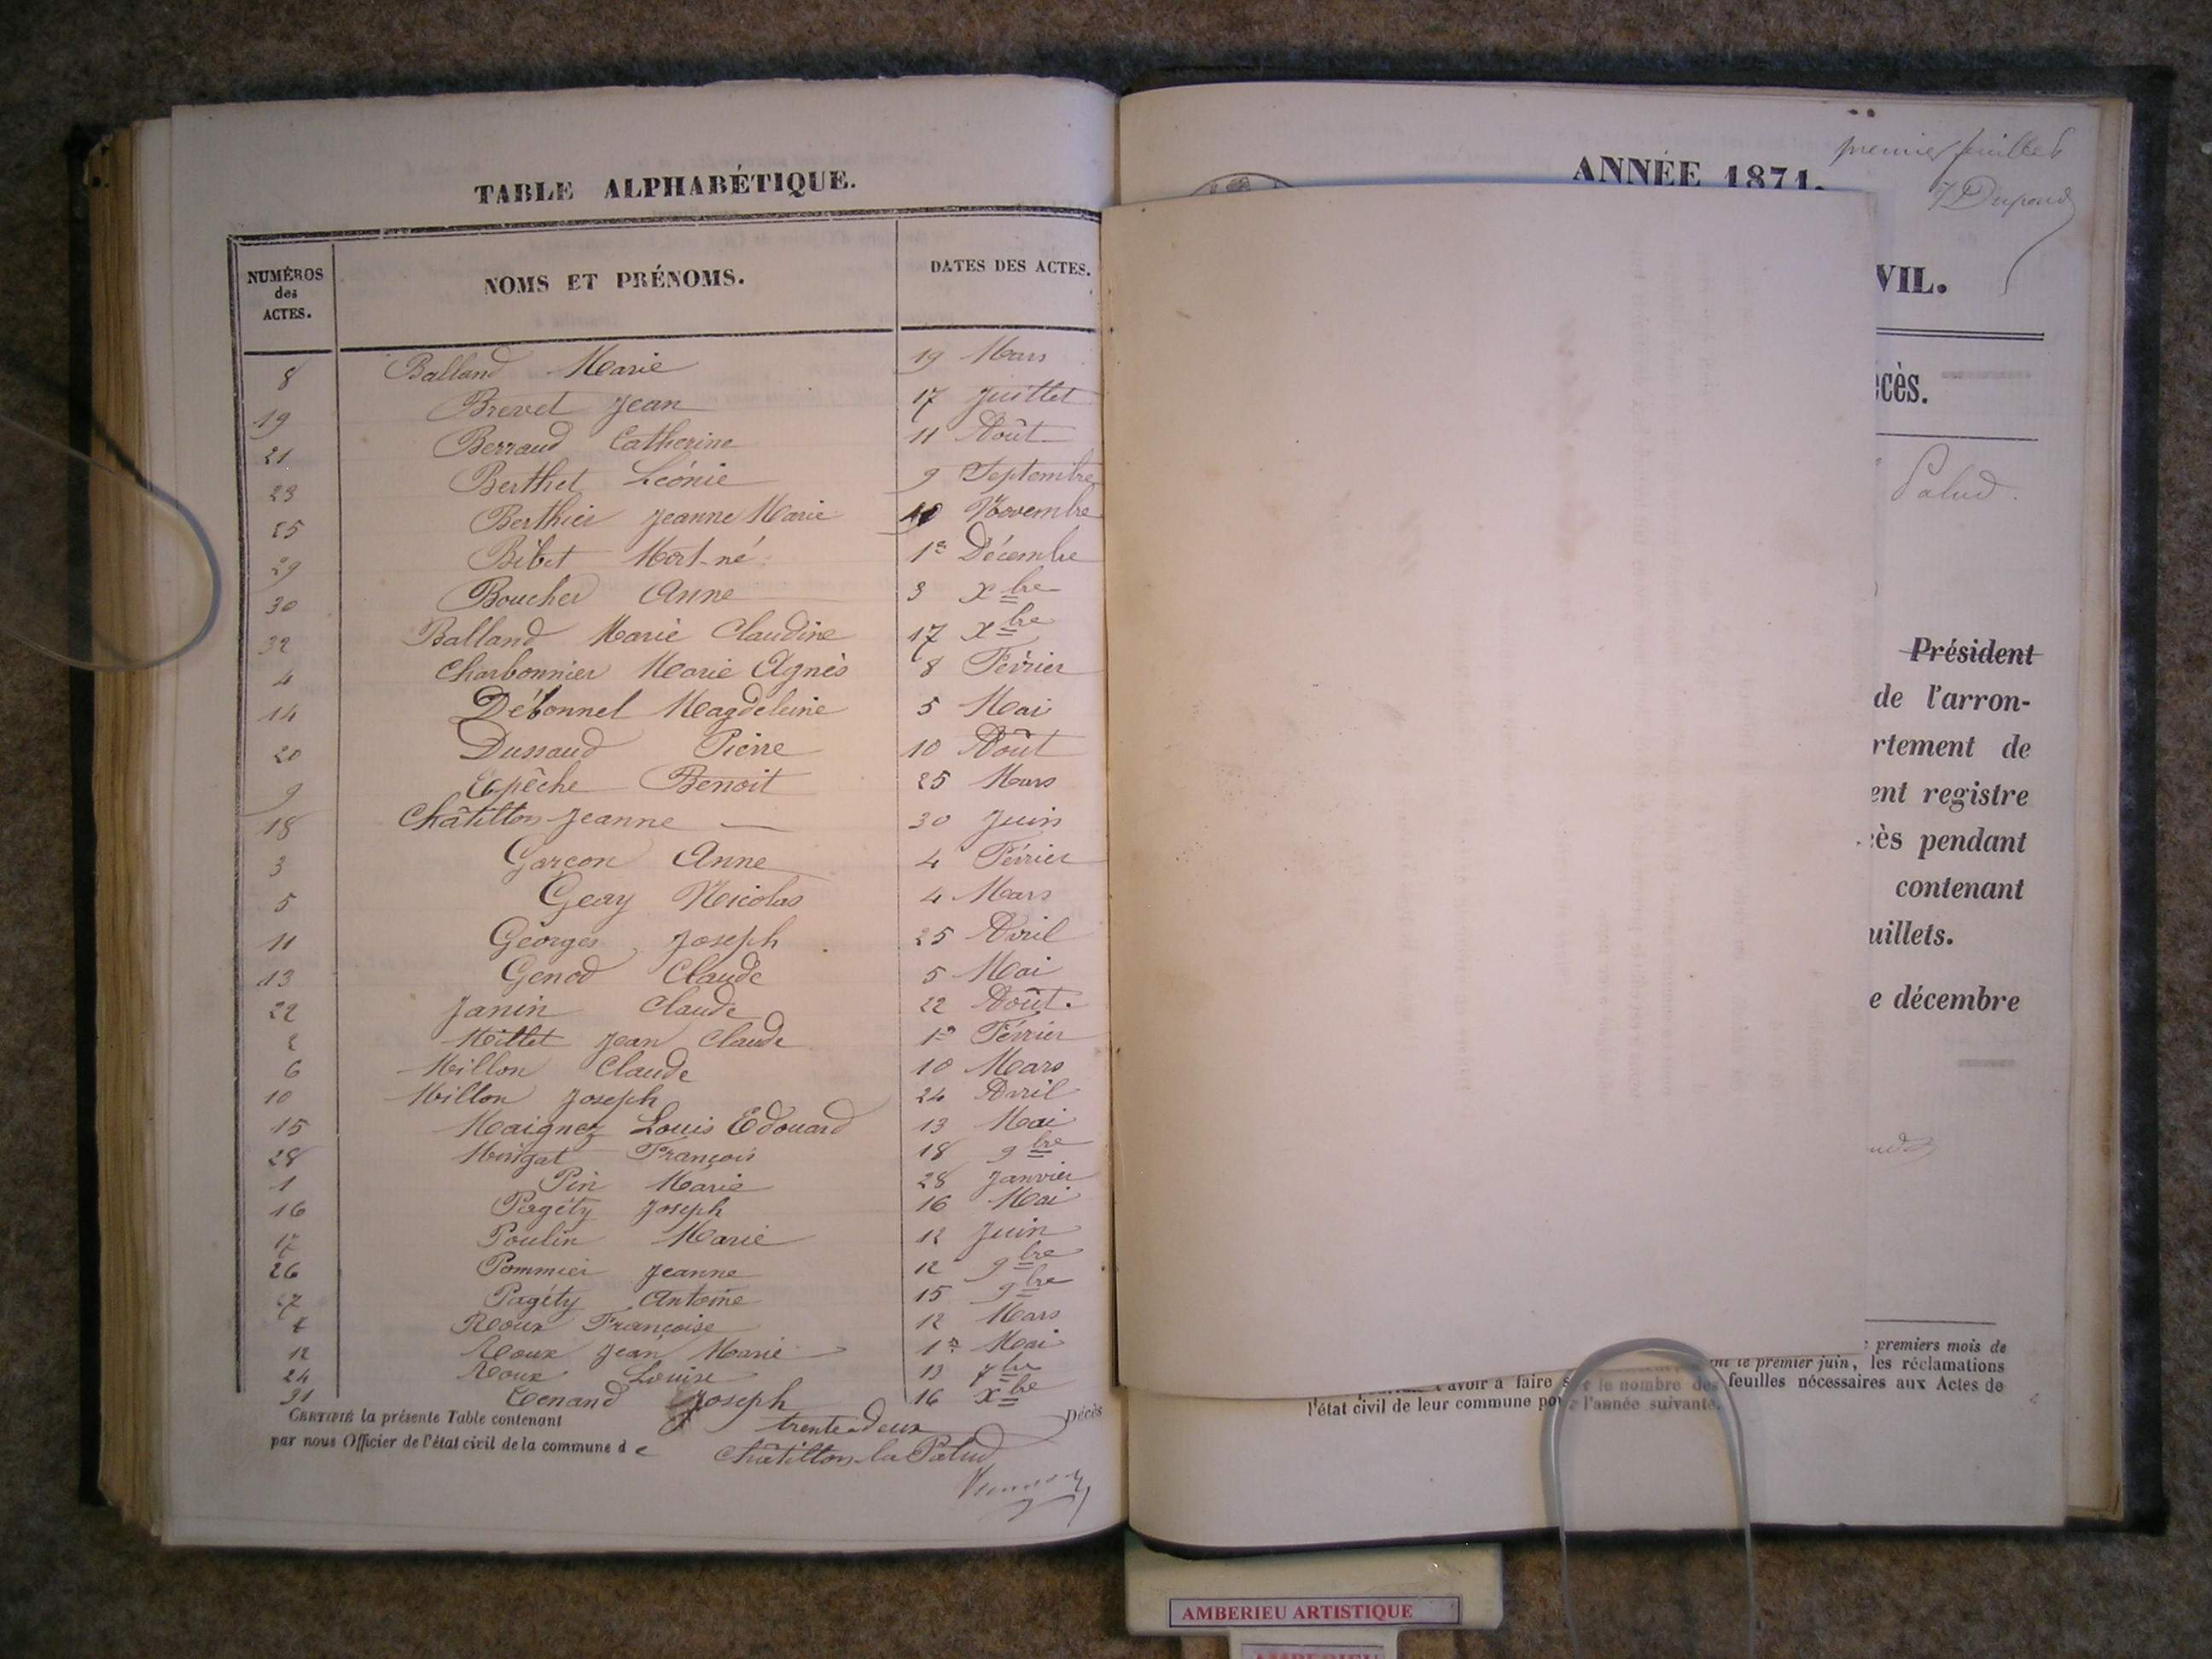 TABLE ALPHABÉTIQUE.
NUMÉROS des ACTES. NOMS ET PRÉNOMS. DATES DES ACTES.
8 Balland Marie 19 Mars
19 Brevet Jean 17 Juillet
21 Berraud Catherine 11 Août
23 Berthet Léonie 9 Septembre
25 Berthier Jeanne Marie Novembre
29 Bibet Mort-né 1er Décembre
30 Boucher Anne 3 Xbre
32 Balland Marie Claudine 17 Xbre
4 Charbonnier Marie Agnès 8 Février
14 Débonnel Magdeleine 5 Mai
20 Dussaud Pierre 10 Août
9 Epêche Benoit 25 Mars
18 Châtillon Jeanne 30 Juin
3 Garçon Anne 4 Février
5 Geay Nicolas 4 Mars
11 Georges Joseph 25 Avril
13 Genod Claude 5 Mai
22 Janin Claude 22 Août.
2 Millet Jean Claude 1er Février
6 Millon Claude 10 Mars
10 Millon Joseph 24 Avril
15 Maignez Louis Edouard 13 Mai
28 François 18 9bre
1 Pin Marie 28 Janvier
16 Pagéty Joseph 16 Mai
17 Poulin Marie 12 Juin
26 Pommier Jeanne 12 9bre
27 Pagéty Antoine 15 9bre
Roux Françoise 12 Mars
12 Roux Jean Marie 1er Mai
24 Roux Louise 13 7bre
31 Joseph 16 Xbre
CERTIFIÉ la présente Table contenant trente-deux Décès
par nous Officier de l'état civil de la commune d e Châtillon-la-Palud
premier feuillet
ANNÉE 1871.
JDupond
VIL.
cès.
Palud.
Président
de l'arron-
rtement de
ent registre
ès pendant
contenant
uillets.
e décembre
premiers mois de
le premier juin, les réclamations
avoir à faire sur le nombre des feuilles nécessaires aux Actes de
l'état civil de leur commune pour l'année suivante.
AMBERIEU ARTISTIQUE
AMBERIEU